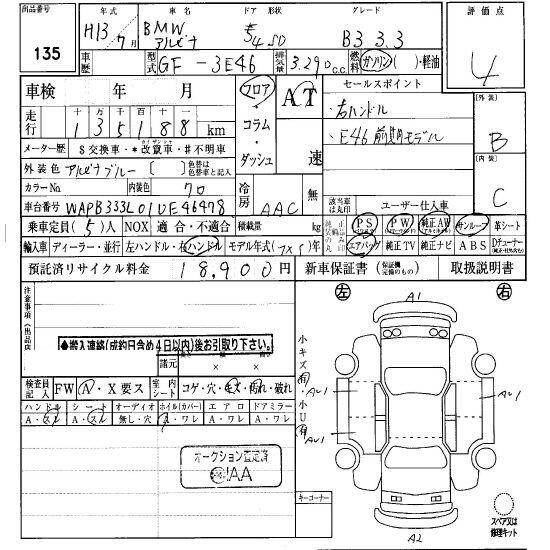 出品番号
135
年式
H13 7月
車名
BMW
アルピナ
ドア 形状
4 SD
グレード
B3 3.3
評価点
4
車歴
型式
GF - 3E46
排気量
3.290 c.c.
燃料
ガソリン ( )・軽油
車検 年 月
フロア・コラム・ダッシュ
AT
速
セールスポイント
右ハンドル
E46 前期モデル
[外装]
B
[内装]
C
走行
十 万 千 百 十 一
1 3 5 1 8 8 km
メーター歴 $交換車・*改竄車・#不明車
外装色 アルピナブルー [ ] 色替は色替車と記入
カラーNo. 内装色 70
車台番号 WAPB333L01UE46478
冷房
AAC
無
該当車は丸印
ユーザー仕入車
乗車定員 (5)人 NOX 適合・不適合 積載量 kg
純正装備のみ〇印
PS PW 純正AW サンルーフ 革シート
輸入車 ディーラー・並行 左ハンドル・右ハンドル モデル年式
エアバッグ 純正TV 純正ナビ ABS Dチューナー
預託済リサイクル料金 18,900円
新車保証書 (保証継承完備のもの) 取扱説明書
注意事項(出品店
●搬入連絡(成約日含め4日以内)後お引取り下さい。
諸元 × ×
検査員記入 FW A・X要ス 室内シート コゲ・穴・キズ・汚れ・破れ
ハンドル シート オーディオ ホイル(カバー) エアロ ドアミラー
A・スレ A・スレ 無し・穴 A・ワレ A・ワレ A・ワレ
オークション査定済
JAA
小キズ有・小U有
左
右
A1
AU1
AU1
AU1
A2
キーコーナー
スペア又は修理キット